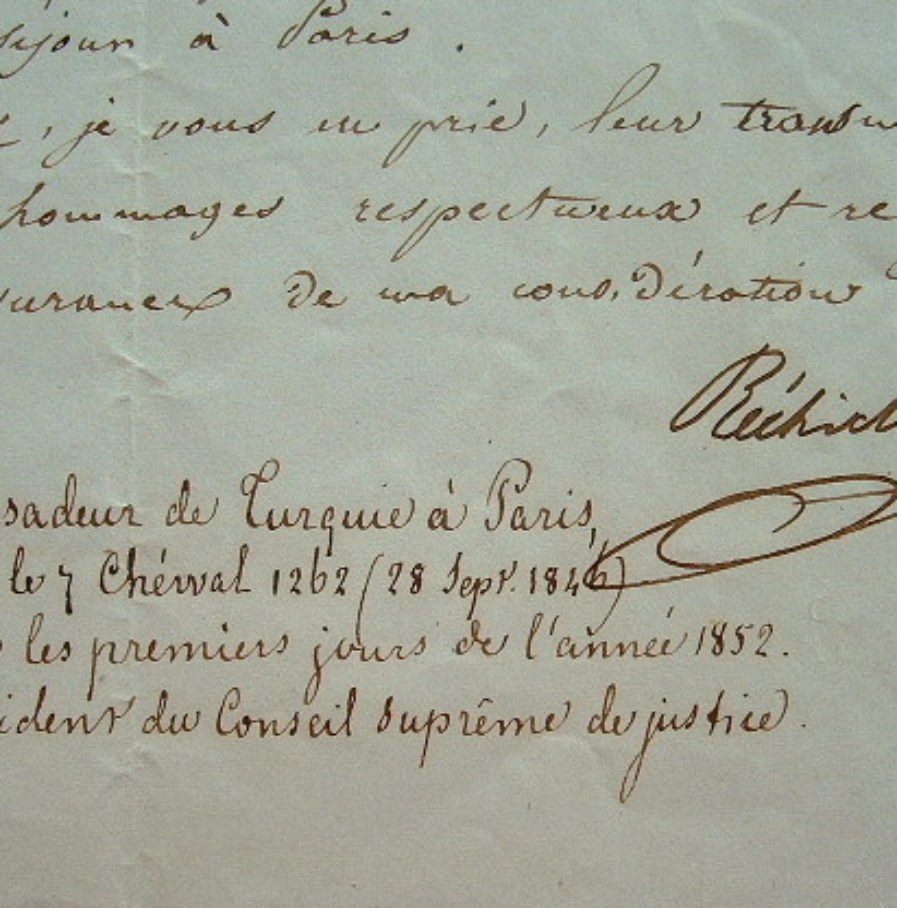 séjour à Paris.
, je vous en prie, leur transm
hommages respectueux et re
surances de ma considération
Réchid
sadeur de Turquie à Paris,
le 7 Chérval 1262 (28 Sept. 1846)
les premiers jours de l'année 1852.
ident du Conseil suprême de justice.